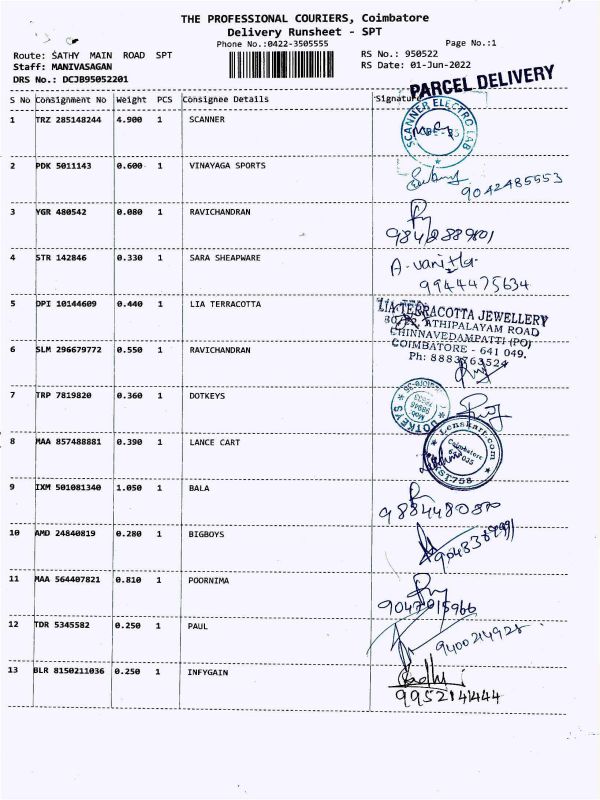 THE PROFESSIONAL COURIERS, Coimbatore
Delivery Runsheet - SPT
Phone No.:0422-3505555
Page No.:1
Route: SATHY MAIN ROAD SPT
RS No.: 950522
Staff: MANIVASAGAN
RS Date: 01-Jun-2022
DRS No.: DCJB95052201
PARCEL DELIVERY
S No Consignment No Weight PCS Consignee Details Signature
1 TRZ 285148244 4.900 1 SCANNER
SCANNER ELECTRO LAB
2 PDK 5011143 0.600 1 VINAYAGA SPORTS
9042485553
3 YGR 480542 0.080 1 RAVICHANDRAN
4 STR 142846 0.330 1 SARA SHEAPWARE
A. vanitha
9944475634
5 DPI 10144609 0.440 1 LIA TERRACOTTA
LIA TERRACOTTA JEWELLERY
ATHIPALAYAM ROAD
CHINNAVEDAMPATTI (PO)
COIMBATORE - 641 049.
Ph: 8883763524
6 SLM 296679772 0.550 1 RAVICHANDRAN
7 TRP 7819820 0.360 1 DOTKEYS
DOTKEYS
8 MAA 857488881 0.390 1 LANCE CART
Lenskart.com
Coimbatore
9 IXM 501081340 1.050 1 BALA
9884480870
10 AMD 24840819 0.280 1 BIGBOYS
11 MAA 564407821 0.810 1 POORNIMA
9047015966
12 TDR 5345582 0.250 1 PAUL
13 BLR 8150211036 0.250 1 INFYGAIN
9952141444